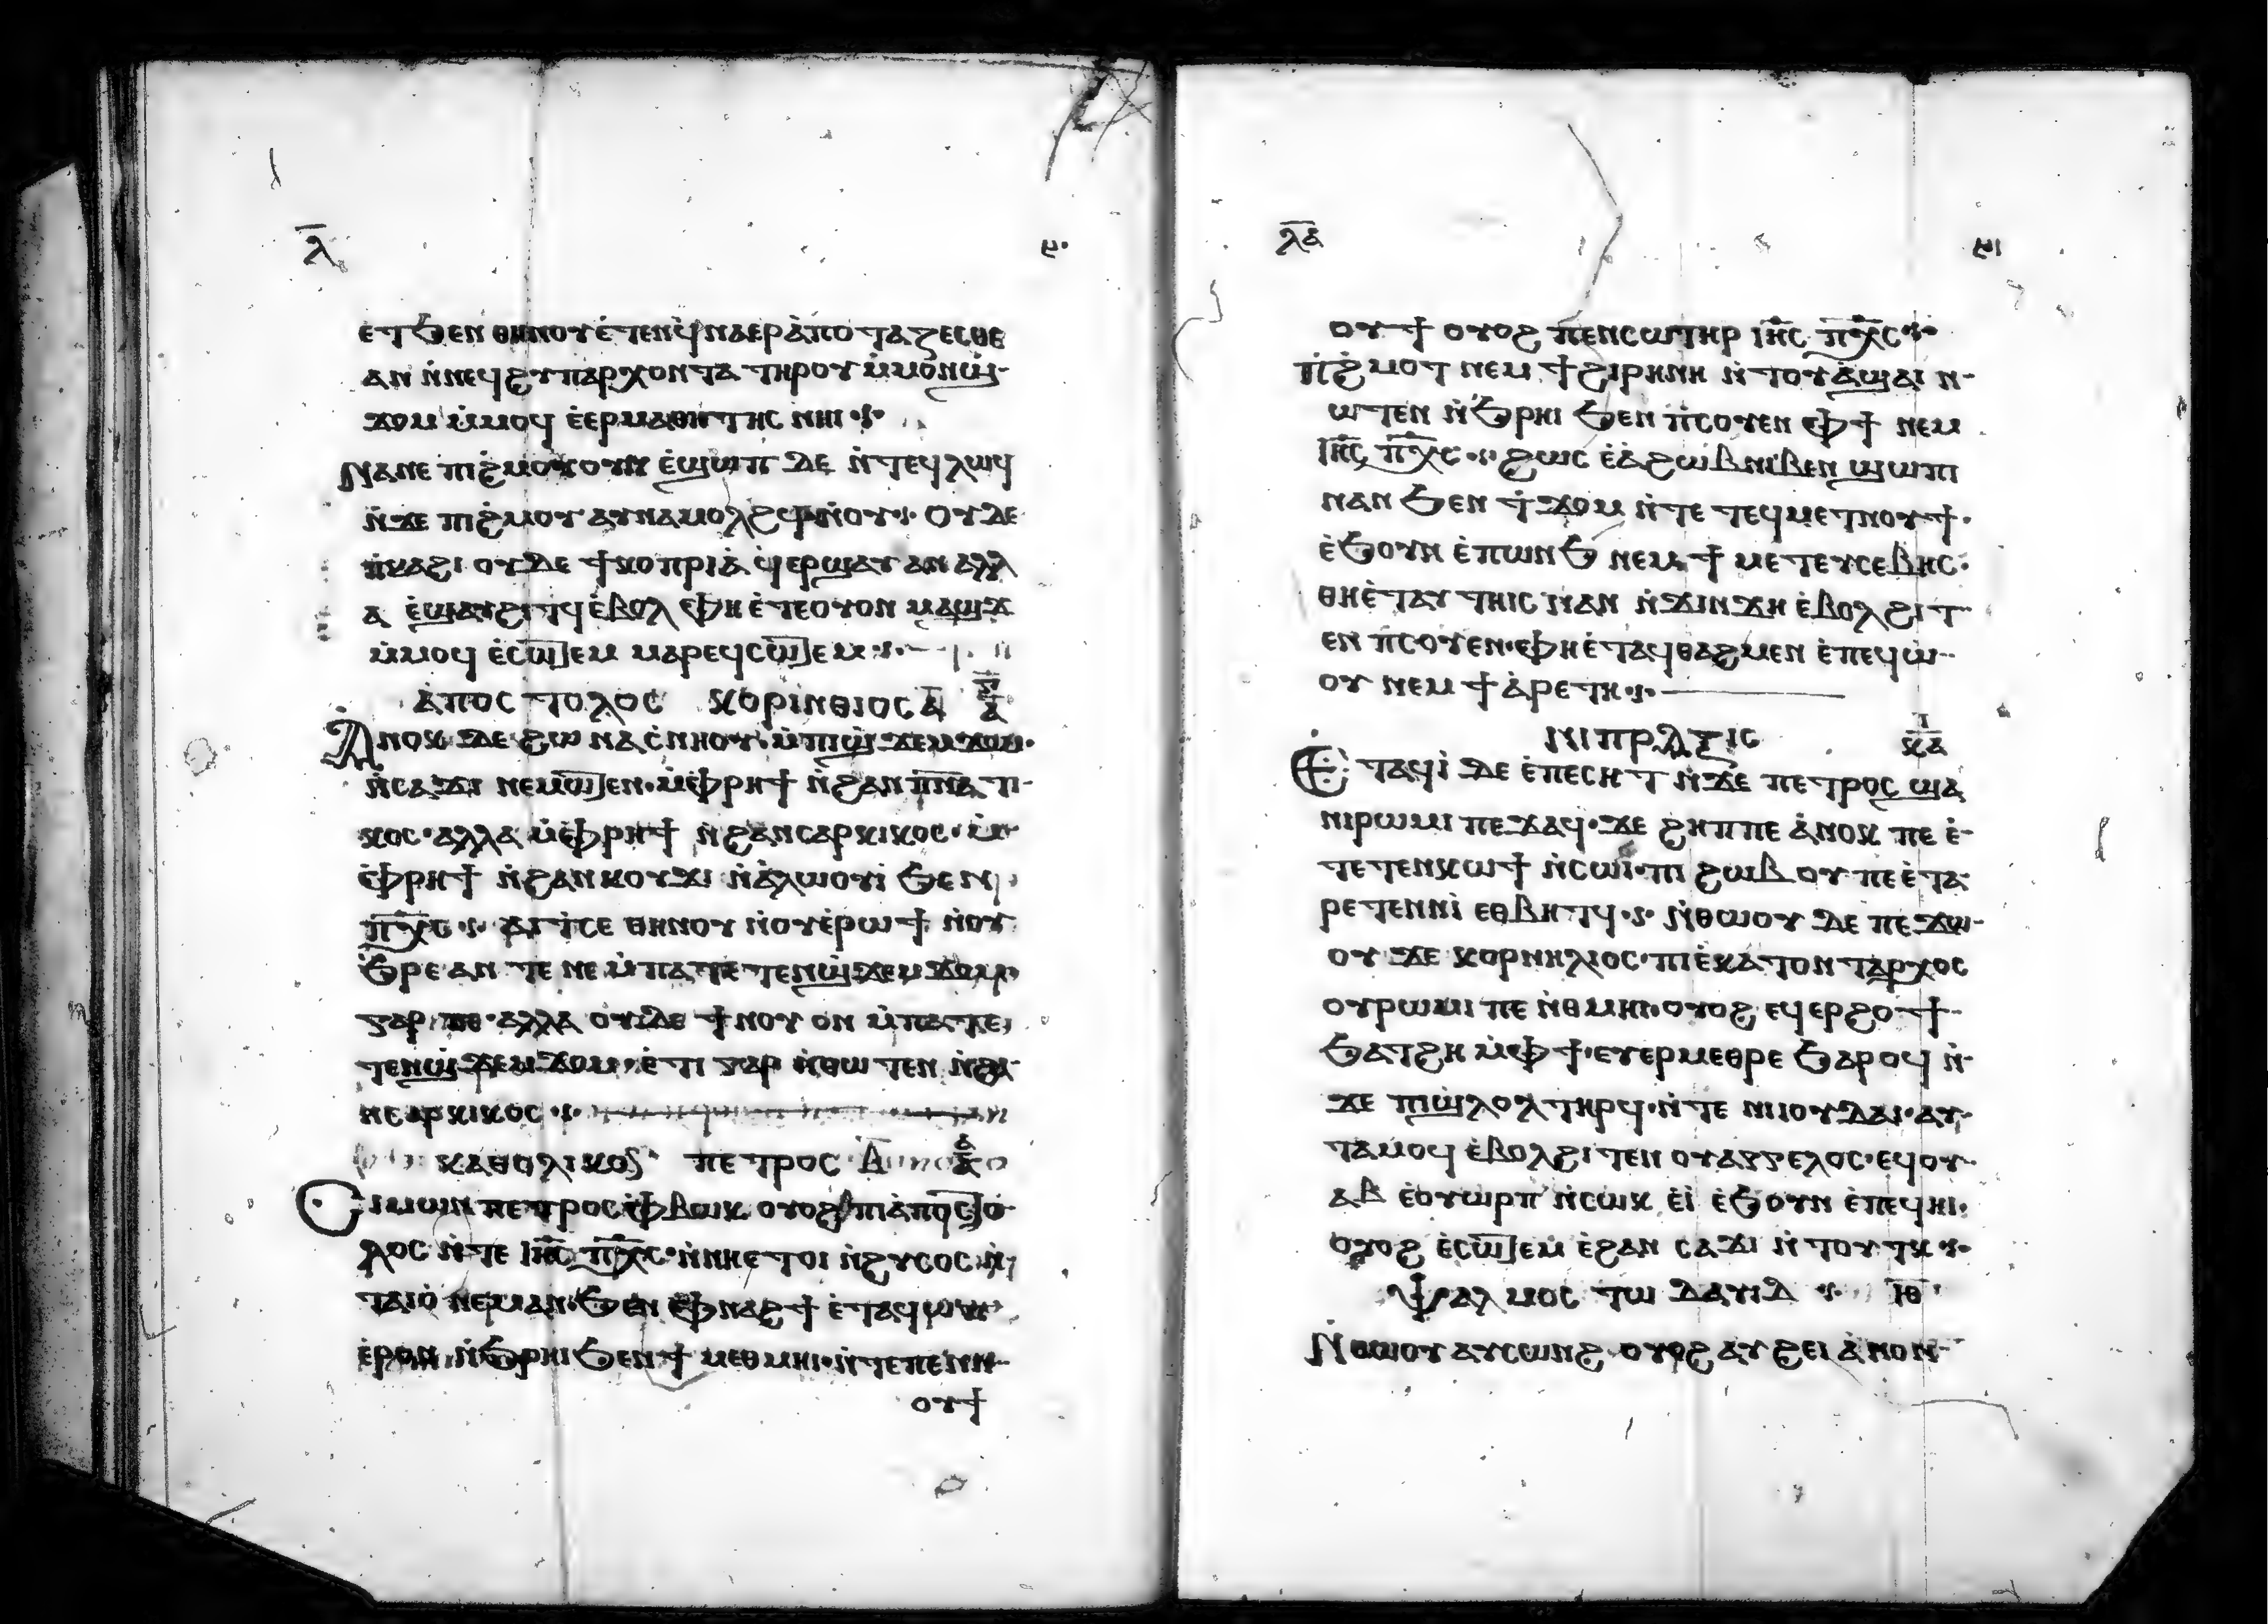 ⲗ̅
ⲉⲧϧⲉⲛ ⲑⲏⲛⲟⲩ ⲉ̀ⲧⲉⲛϥ̀ⲛⲁⲉⲣⲁ̀ⲡⲟⲧⲁⲍⲉⲥⲑⲉ
ⲁⲛ ⲛ̀ⲛⲉϥϩⲩⲡⲁⲣⲭⲟⲛⲧⲁ ⲧⲏⲣⲟⲩ ⲙ̀ⲙⲟ́ⲛϣ̀
ϫⲟⲙ ⲙ̀ⲙⲟϥ ⲉ̀ⲉⲣⲙⲁⲑⲏⲧⲏⲥ ⲛⲏⲓ
ⲛⲁⲛⲉ ⲡⲓϩ̀ⲙⲟⲩ ⲟⲩⲛ ⲉ̀ϣⲱⲡ ⲇⲉ ⲛ̀ⲧⲉϥⲗⲱϥ
ⲛ̀ϫⲉ ⲡⲓϩ̀ⲙⲟⲩ ⲁⲩⲛⲁⲙⲟⲗϩϥ ⲛ̀ⲟⲩ ⲟⲩⲇⲉ
ⲡ̀ⲕⲁϩⲓ ⲟⲩⲇⲉ ϯⲕⲟⲡⲣⲓⲁ̀ ϥ̀ⲉⲣϣⲁⲩ ⲁⲛ ⲁⲗⲗ
ⲁ ⲉ̀ϣⲁⲩϩⲓⲧϥ ⲉ̀ⲃⲟⲗ ⲫⲏ ⲉ̀ⲧⲉⲟⲩⲟⲛ ⲙⲁϣϫ
ⲙ̀ⲙⲟϥ ⲉ̀ⲥⲱⲧⲉⲙ ⲙⲁⲣⲉϥⲥⲱⲧⲉⲙ
ⲁ̀ⲡⲟⲥⲧⲟⲗⲟⲥ ⲕⲟⲣⲓⲛⲑⲓⲟⲥ ⲁ̅
ⲁ̀ⲛⲟⲕ ⲇⲉ ϩⲱ ⲛⲁⲥ̀ⲛⲏⲟⲩ ⲙ̀ⲡⲓϣ̀ϫⲉⲙϫⲟⲙ
ⲛ̀ⲥⲁϫⲓ ⲛⲉⲙⲱⲧⲉⲛ ⲙ̀ⲫⲣⲏϯ ⲛ̀ϩⲁⲛⲡ̅ⲛ̅ⲁ̅ⲧⲓ
ⲕⲟⲥ ⲁⲗⲗⲁ ⲙ̀ⲫⲣⲏϯ ⲛ̀ϩⲁⲛⲥⲁⲣⲕⲓⲕⲟⲥ ⲙ̀
ⲫⲣⲏϯ ⲛ̀ϩⲁⲛⲕⲟⲩϫⲓ ⲛ̀ⲁ̀ⲗⲱⲟⲩⲓ̀ ϧⲉⲛ
ⲡ̅ⲭ̅ⲥ̅ ⲁⲓⲧⲥⲉ ⲑⲏⲛⲟⲩ ⲛ̀ⲟⲩⲉ̀ⲣⲱϯ ⲛ̀ⲟⲩ
ϧ̀ⲣⲉ ⲁⲛ ⲧⲉ ⲛⲉ ⲙ̀ⲡⲁⲧⲉⲧⲉⲛϣ̀ϫⲉⲙϫⲟⲙ
ⲅⲁⲣ ⲡⲉ ⲁⲗⲗⲁ ⲟⲩⲇⲉ ϯⲛⲟⲩ ⲟⲛ ⲙ̀ⲡⲁⲧⲉ
ⲧⲉⲛϣ̀ϫⲉⲙϫⲟⲙ ⲉ̀ⲧⲓ ⲅⲁⲣ ⲛ̀ⲑⲱⲧⲉⲛ ⲛ̀ϩⲁ
ⲛⲥⲁⲣⲕⲓⲕⲟⲥ
ⲕⲁⲑⲟⲗⲓⲕⲟⲥ ⲡⲉⲧⲣⲟⲥ ⲃ̅
ⲥⲓⲙⲱⲛ ⲡⲉⲧⲣⲟⲥ ⲫ̀ⲃⲱⲕ ⲟⲩⲟϩ ⲡⲓⲁ̀ⲡⲟⲥⲧⲟ
ⲗⲟⲥ ⲛ̀ⲧⲉ ⲓ̅ⲏ̅ⲥ̅ ⲡ̅ⲭ̅ⲥ̅ ⲛ̀ⲛⲏⲉⲧⲟⲓ ⲛ̀ϩⲩⲥⲟⲥ ⲛ̀
ⲧⲁⲓⲟ̀ ⲛⲉⲙⲁⲛ ϧⲉⲛ ⲫⲛⲁϩϯ ⲉ̀ⲧⲁϥⲱⲡ
ⲉ̀ⲣⲟⲛ ⲛ̀ϧⲣⲏⲓ ϧⲉⲛ ϯⲙⲉⲑⲙⲏⲓ ⲛ̀ⲧⲉ ⲡⲉⲛⲛ
ⲟⲩϯ
ⲗⲁ̅
ⲟⲩϯ ⲟⲩⲟϩ ⲡⲉⲛⲥⲱⲧⲏⲣ ⲓ̅ⲏ̅ⲥ̅ ⲡ̅ⲭ̅ⲥ̅
ⲡϩ̀ⲙⲟⲧ ⲛⲉⲙ ϯϩⲓⲣⲏⲛⲏ ⲛ̀ⲧⲟⲩⲁ̀ϣⲁⲓ ⲛ
ⲱⲧⲉⲛ ⲛ̀ϧⲣⲏⲓ ϧⲉⲛ ⲡ̀ⲥⲟⲩⲉⲛ ⲫϯ ⲛⲉⲙ
ⲓ̅ⲏ̅ⲥ̅ ⲡ̅ⲭ̅ⲥ̅ ϩⲱⲥ ⲉ̀ⲁ̀ϩⲱⲃ ⲛⲓⲃⲉⲛ ϣⲱⲡⲓ
ⲛⲁⲛ ϧⲉⲛ ϯ̀ϫⲟⲙ ⲛ̀ⲧⲉ ⲧⲉϥⲙⲉⲧⲛⲟⲩϯ
ⲉ̀ϧⲟⲩⲛ ⲉ̀ⲡⲱⲛϧ ⲛⲉⲙ ϯⲙⲉⲧⲉⲩⲥⲉⲃⲏⲥ
ⲑⲏ ⲉ̀ⲧⲁⲩⲧⲏⲓⲥ ⲛⲁⲛ ⲛ̀ϫⲓⲛϫⲏ ⲉ̀ⲃⲟⲗϩⲓⲧ
ⲉⲛ ⲡⲥⲟⲩⲉⲛ ⲫⲏ ⲉ̀ⲧⲁϥⲑⲁϩⲙⲉⲛ ⲉ̀ⲡⲉϥⲱ̀
ⲟⲩ ⲛⲉⲙ ϯⲁ̀ⲣⲉⲧⲏ
ⲛⲓⲡⲣⲁⲝⲓⲥ ⲕⲁ̅
ⲉ̀ⲧⲁϥⲓ̀ ⲇⲉ ⲉ̀ⲡⲉⲥⲏⲧ ⲛ̀ϫⲉ ⲡⲉⲧⲣⲟⲥ ϣⲁ
ⲛⲓⲣⲱⲙⲓ ⲡⲉϫⲁϥ ϫⲉ ϩⲏⲡⲡⲉ ⲁ̀ⲛⲟⲕ ⲡⲉ ⲉ̀
ⲧⲉⲧⲉⲛⲕⲱϯ ⲛ̀ⲥⲱⲓ ⲡⲓϩⲱⲃ ⲟⲩ ⲡⲉ ⲉ̀ⲧⲁ
ⲣⲉⲧⲉⲛⲛⲓ̀ ⲉⲑⲃⲏⲧϥ ⲛ̀ⲑⲱⲟⲩ ⲇⲉ ⲡⲉϫⲱ
ⲟⲩ ϫⲉ ⲕⲟⲣⲛⲏⲗⲓⲟⲥ ⲡⲓⲉ̀ⲕⲁⲧⲟⲛⲧⲁⲣⲭⲟⲥ
ⲟⲩⲣⲱⲙⲓ ⲡⲉ ⲛ̀ⲑⲙⲏⲓ ⲟⲩⲟϩ ⲉϥⲉⲣϩⲟϯ
ϧⲁⲧϩⲏ ⲙ̀ⲫϯ ⲉⲩⲉⲣⲙⲉⲑⲣⲉ ϧⲁⲣⲟϥ ⲛ̀
ϫⲉ ⲡⲓϣ̀ⲗⲟⲗ ⲧⲏⲣϥ ⲛ̀ⲧⲉ ⲛⲓⲓⲟⲩⲇⲁⲓ ⲁⲩ
ⲧⲁⲙⲟϥ ⲉ̀ⲃⲟⲗϩⲓⲧⲉⲛ ⲟⲩⲁⲅⲅⲉⲗⲟⲥ ⲉϥⲟⲩ
ⲁⲃ ⲉ̀ⲟⲩⲱⲣⲡ ⲛ̀ⲥⲱⲕ ⲉ̀ⲓ̀ ⲉ̀ϧⲟⲩⲛ ⲉ̀ⲡⲉϥⲏⲓ
ⲟⲩⲟϩ ⲉ̀ⲥⲱⲧⲉⲙ ⲉ̀ϩⲁⲛ ⲥⲁϫⲓ ⲛ̀ⲧⲟⲧⲕ
ⲯⲁⲗⲙⲟⲥ ⲧⲱ ⲇⲁⲩⲓⲇ ⲓⲑ̅
ⲛ̀ⲑⲱⲟⲩ ⲁⲩⲥⲱⲛϩ ⲟⲩⲟϩ ⲁⲩϩⲉⲓ ⲁ̀ⲛⲟⲛ